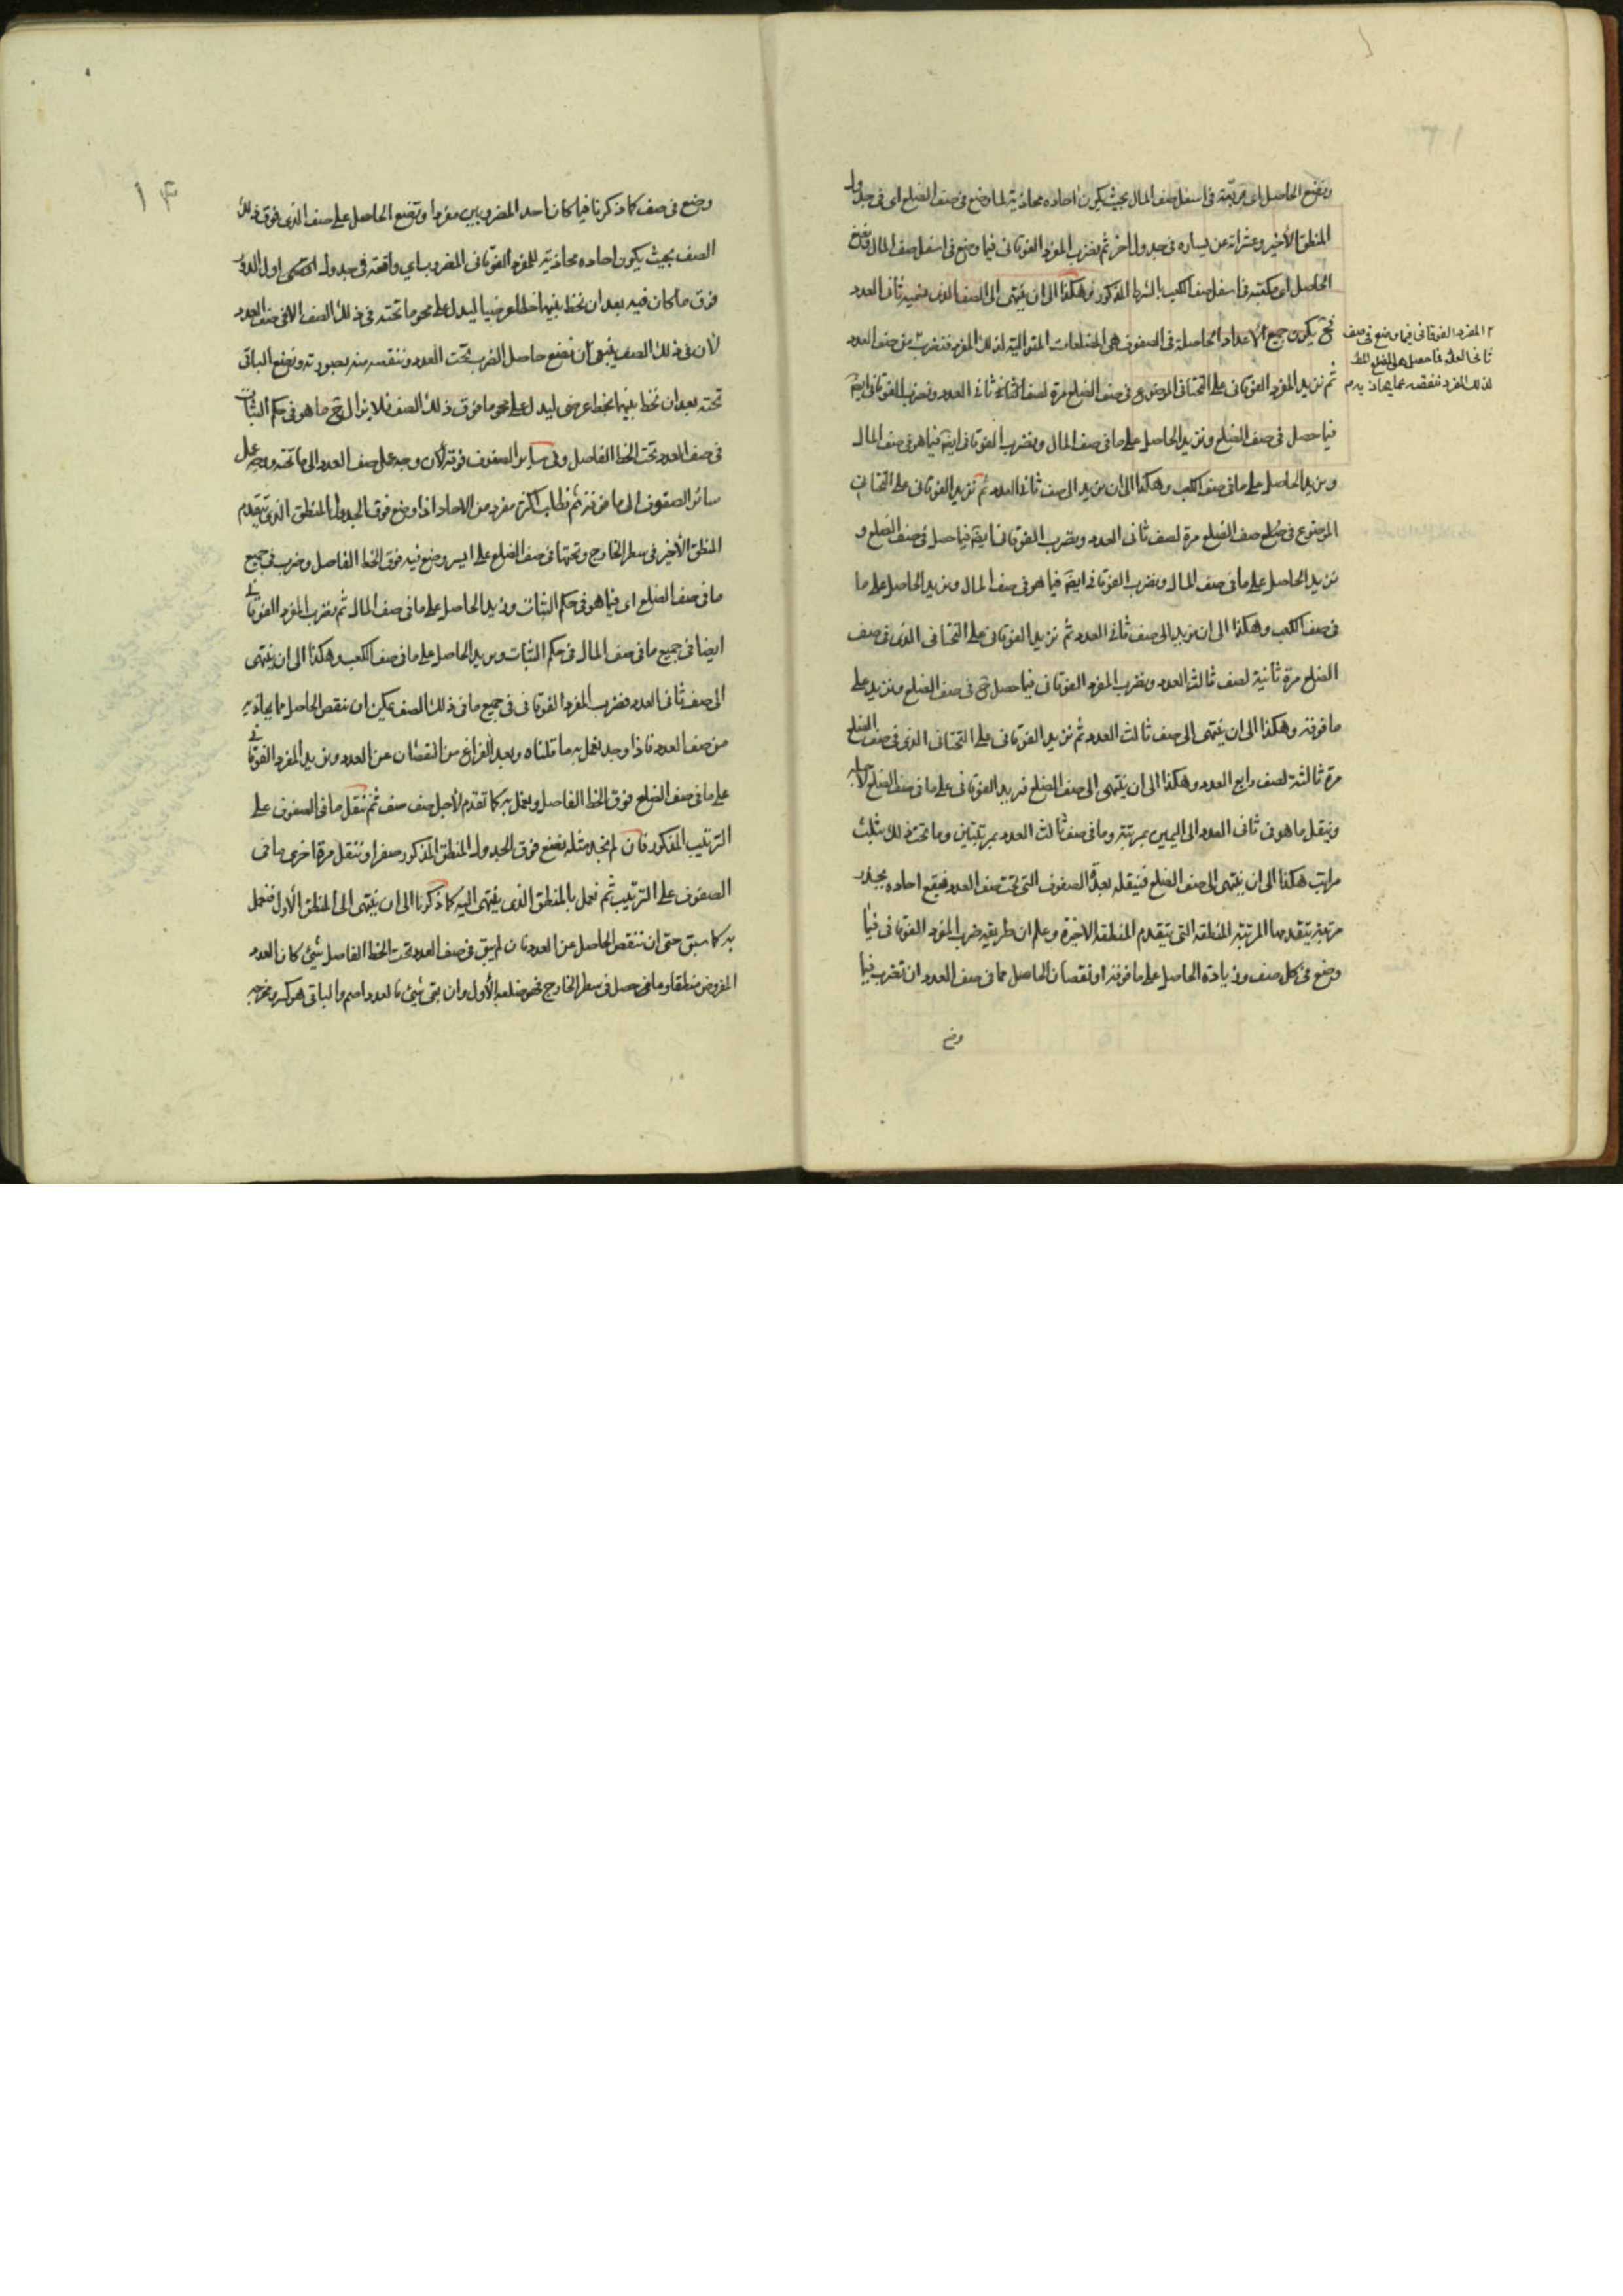 ونضع الحاصل اى مربعه فى اسفل صف المال بحيث يكون احاده محاذية لما وضع فى صف الضلع اى فى جدول
المنطق الأخير وعشراته عن يساره فى جدول آخر ثم نضرب المفرد الفوقانى فيما وضع فى اسفل صف المال ونضع
الحاصل اى مكعبه فى اسفل صف الكعب بالشرط المذكور وهكذا الى ان ينتهى الى الصف الذى نسميه ثانى العدد
فح يكون جميع الأعداد الحاصلة فى الصفوف هى المضلعات المتوالية لذلك المفرد فنضرب من صف العدد
٢ المفرد الفوقانى فيما وضع فى صف
ثانى العدد فما حصل هو المضلع
لذلك المفرد ننقصه مما يحاذيه م
ثم نزيد المفرد الفوقانى على التحتانى الموضوع فى صف الضلع مرة لصف ثانى العدد ونضرب الفوقانى ايضا
فيما حصل فى صف الضلع ونزيد الحاصل على ما فى صف المال ونضرب الفوقانى ايضا فيما هو فى صف المال
ونزيد الحاصل على ما فى صف الكعب وهكذا الى ان نزيد الى صف ثانى العدد ثم نزيد الفوقانى على التحتانى
الموضوع فى صف الضلع مرة لصف ثانى العدد ونضرب الفوقانى ايضا فيما حصل فى صف الضلع و
نزيد الحاصل على ما فى صف المال ونضرب الفوقانى ايضا فيما هو فى صف المال ونزيد الحاصل على ما
فى صف الكعب وهكذا الى ان نزيد الى صف ثانى العدد ثم نزيد الفوقانى على التحتانى الذى فى صف
الضلع مرة ثانية لصف ثالث العدد ونضرب المفرد الفوقانى فيما حصل ح فى صف الضلع ونزيد على
ما فوقه وهكذا الى ان ينتهى الى صف ثالث العدد ثم نزيد الفوقانى على التحتانى الذى فى صف الضلع
مرة ثالثة لصف رابع العدد وهكذا الى ان ينتهى الى صف الضلع فنزيد الفوقانى على ما فى صف الضلع لأجله
وننقل ما هو فى ثانى العدد الى اليمين بمرتبة وما فى صف ثالث العدد بمرتبتين وما تحت ذلك بثلث
مراتب هكذا الى ان ينتهى الى صف الضلع فننقله بعدة الصفوف التى تحت صف العدد فيقع احاده بحذاء
مرتبة يتقدمها المرتبة المنطقة التى يتقدم المنطقة الاخيرة وعلم ان طريقه ضرب المفرد الفوقانى فيما
وضع فى كل صف وزيادة الحاصل على ما فوقه او نقصان الحاصل مما فى صف العدد ان نضرب فيما
وضع
١٣
وضع فى صف كما ذكرنا فيما كان احد المضروبين مفردا ونضع الحاصل على صف الذى فوق ذلك
الصف بحيث يكون احاده محاذية للمفرد الفوقانى المضروب اى واقعة فى جدول
فوق ما كان فيه بعد ان نخط بينهما خطا عرضيا ليدل على محو ما تحته فى ذلك الصف الا فى صف العدد
لأن فى ذلك الصف ينبغى ان نضع حاصل الضرب تحت العدد وننقصه منه بصورته ونضع الباقى
تحته بعد ان نخط بينهما بخط عرضى ليدل على محو ما فوق ذلك الصف فلا يزال يقع ما هو فى حكم الثبات
فى صف العدد تحت الخط الفاصل وفى سائر الصفوف فوقه لأن وجه عمل صف العدد الى ما تحته ووجه عمل
سائر الصفوف الى ما فوقه ثم نطلب اكثر مفرد من الاحاد اذا وضع فوق الجدول المنطق الذى يتقدم
المنطق الأخير فى سطر الخارج وتحتها فى صف الضلع على ايسر وضع فيه فوق الخط الفاصل وضرب فى جميع
ما فى صف الضلع اى فيما هو فى حكم الثبات ونزيد الحاصل على ما فى صف المال ثم نضرب المفرد الفوقانى
ايضا فى جميع ما فى صف المال فى حكم الثبات ونزيد الحاصل على ما فى صف الكعب وهكذا الى ان ينتهى
الى صف ثانى العدد فنضرب المفرد الفوقانى فى جميع ما فى ذلك الصف يمكن ان ننقص الحاصل مما يحاذيه
من صف العدد فاذا وجد نعمل به ما قلناه وبعد الفراغ من النقصان عن العدد ونزيد المفرد الفوقانى
على ما فى صف الضلع فوق الخط الفاصل ونعمل به كما تقدم لأجل صف صف ثم ننقل ما فى الصفوف على
الترتيب المذكور فان لم نجد مثله نضع فوق الجدول المنطق المذكور صفرا وننقل مرة اخرى ما فى
الصفوف على الترتيب ثم نعمل بالمنطق الذى ينتهى اليه كما ذكرنا الى ان ينتهى الى المنطق الأول فنعمل
به كما سبق حتى ان ننقص الحاصل عن العدد فان لم يبق فى صف العدد تحت الخط الفاصل شئ كان العدد
المفروض منطقا وما حصل فى سطر الخارج فهو ضلعه الأول وان بقى شئ فالعدد اصم والباقى هو كسر ومخرجه